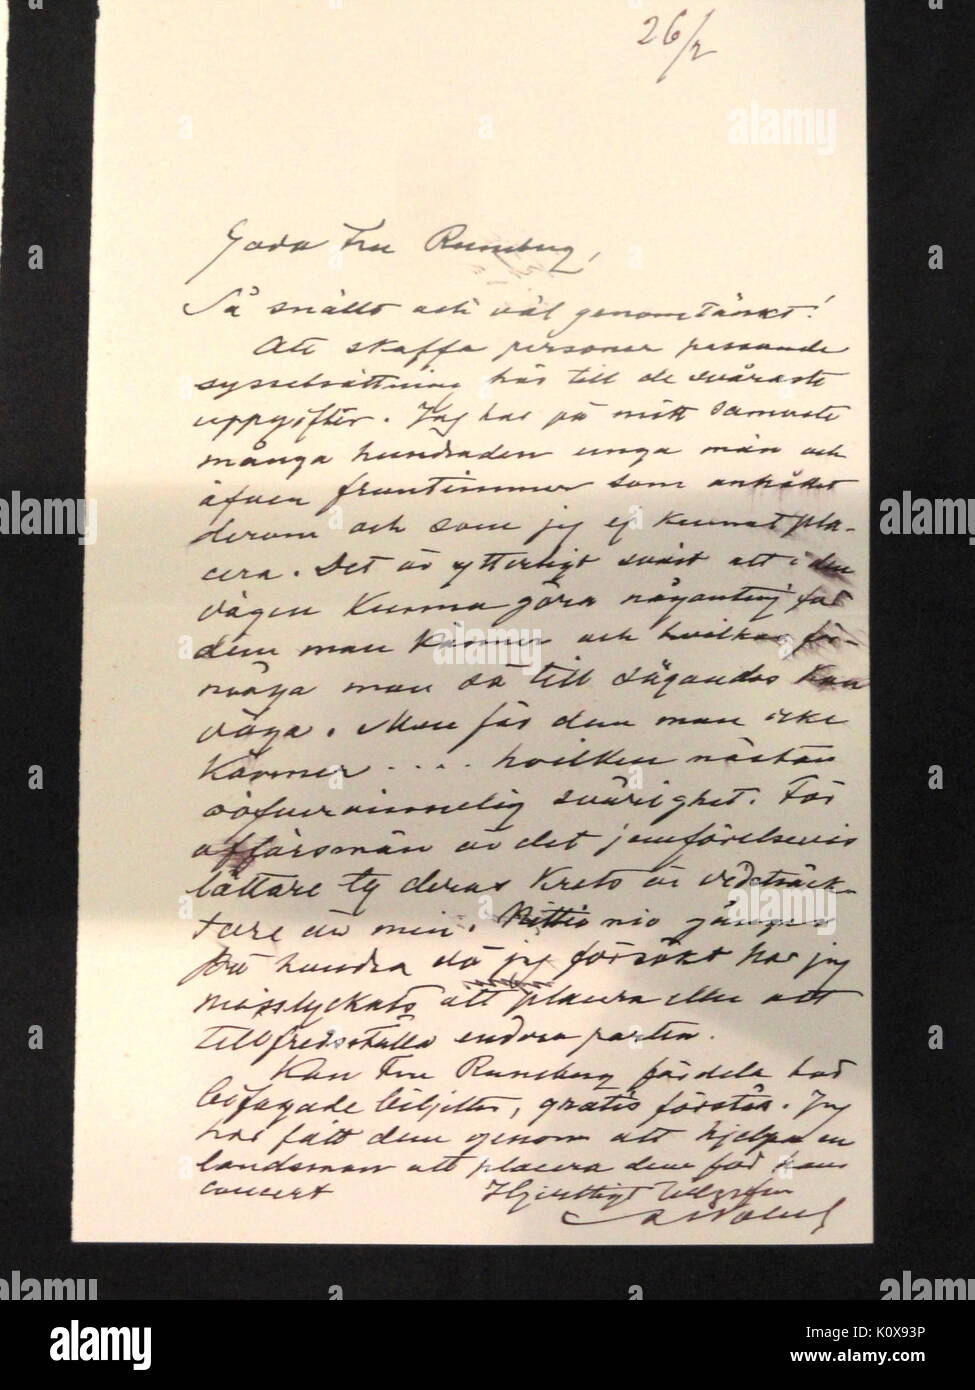 26/2
Goda Fru Runeberg,
Så snällt och väl genomtänkt!
Att skaffa personer passande
sysselsättning hör till de svåraste
uppgifter. Jag har på mitt samvete
många hundraden unga män och
äfven fruntimmer som anhållit
derom och som jag ej kunnat pla-
cera. Det är ytterligt svårt att i den
vägen kunna göra någonting för
dem man känner och hvilkas för-
måga man så till sägandes kan
väga. Men för dem man icke
känner .... hvilken nästan
oöfvervinnelig svårighet. För
affärsmän är det jemförelsevis
lättare ty deras krets är vidsträck-
tare än min. Nittio nio gånger
på hundra då jag försökt har jag
misslyckats att placera eller att
tillfredsställa endera parten.
Kan Fru Runeberg fördela här
bifogade biljetter, gratis förstås. Jag
har fått dem genom att hjelpa en
landsman att placera dem för hans
concert Hjertligt
A Nobel
alamy
alamy
alamy
alamy
alamy
alamy
alamy
Image ID: K0X93P
www.alamy.com